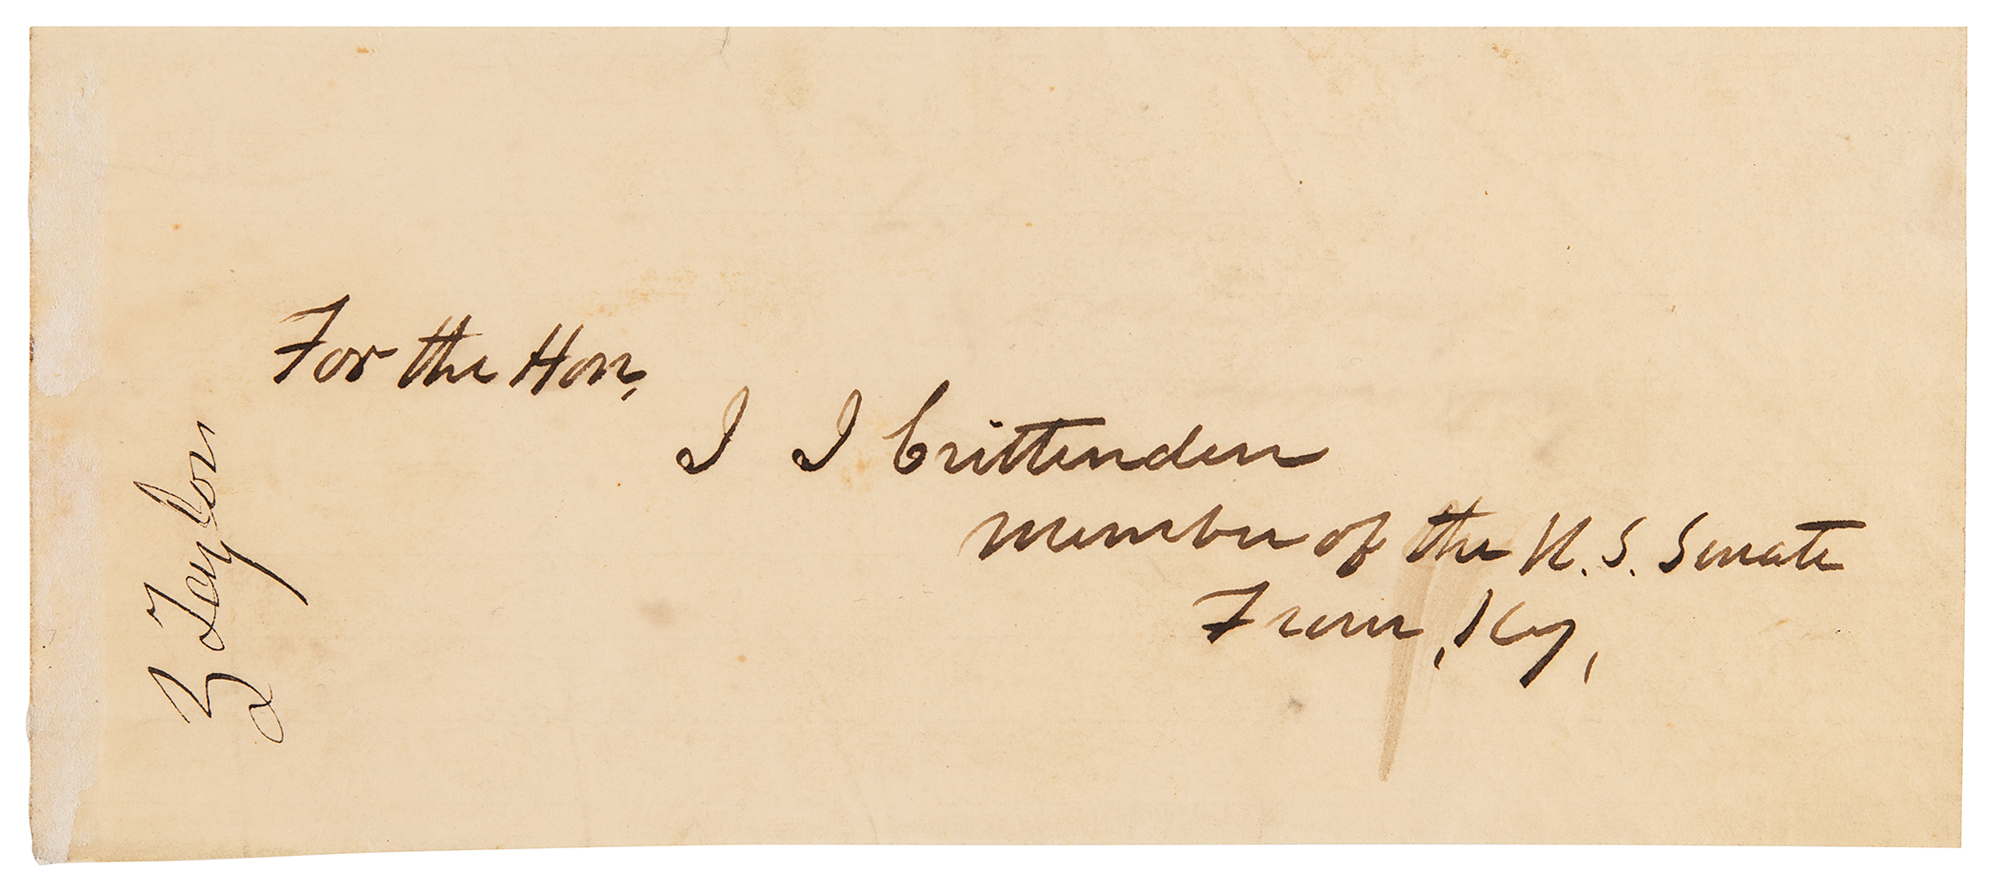 For the Hon,
J J Crittenden
member of the U. S. Senate
From, Ky,
Z Taylor